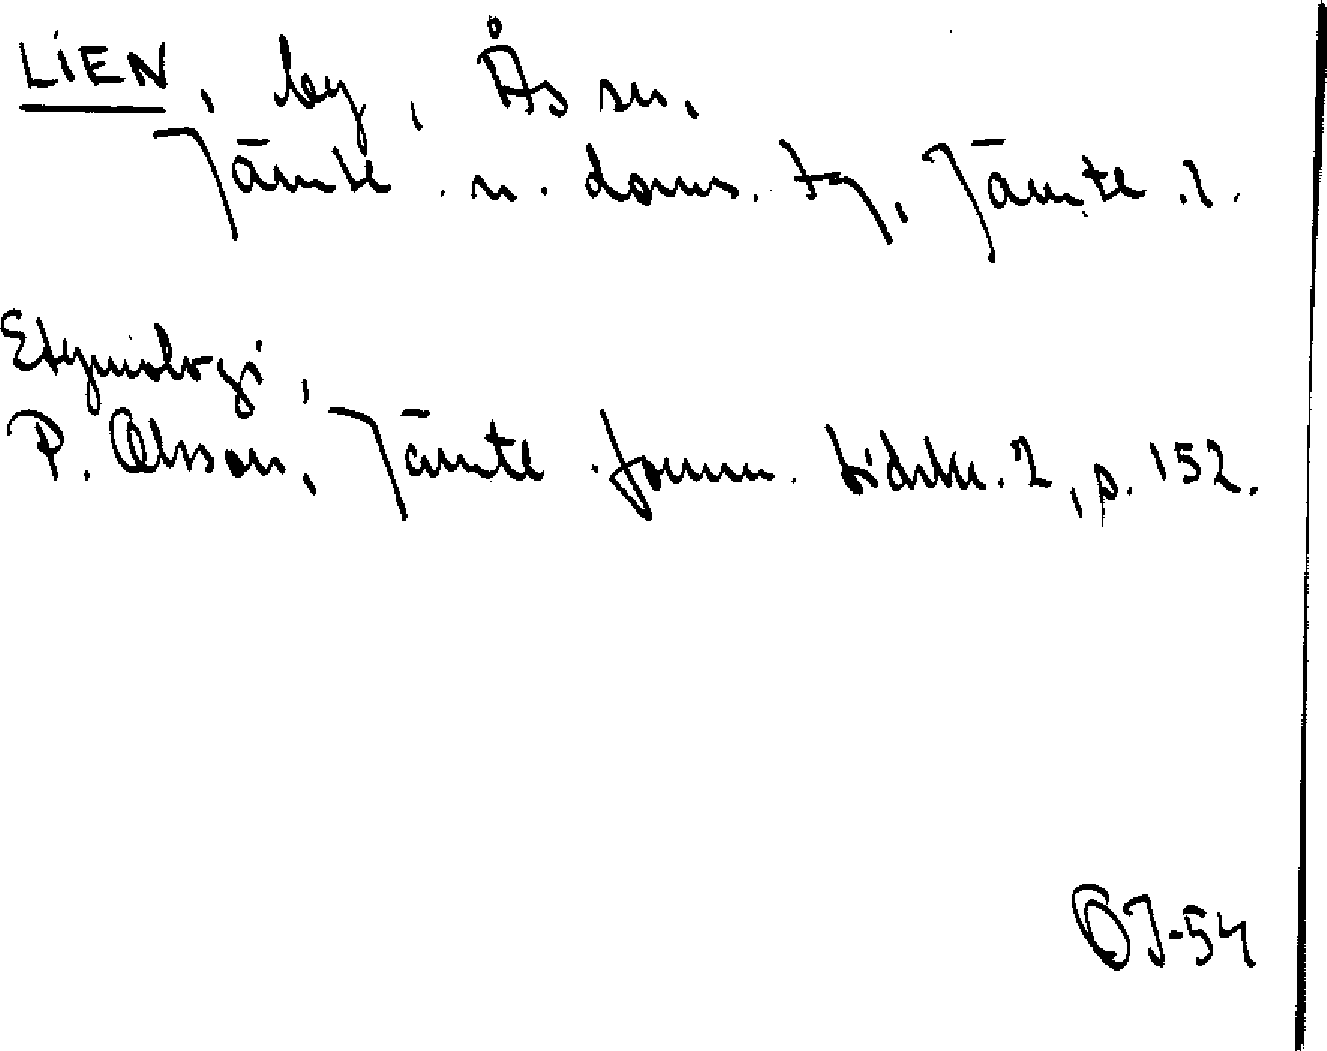 LIEN, by, Ås sn,
Jämtl. n. doms. tg, Jämtl. l.
Etymologi,
P. Olsson, Jämtl. fornm. tidskr. 2, p. 152.
OJ-54